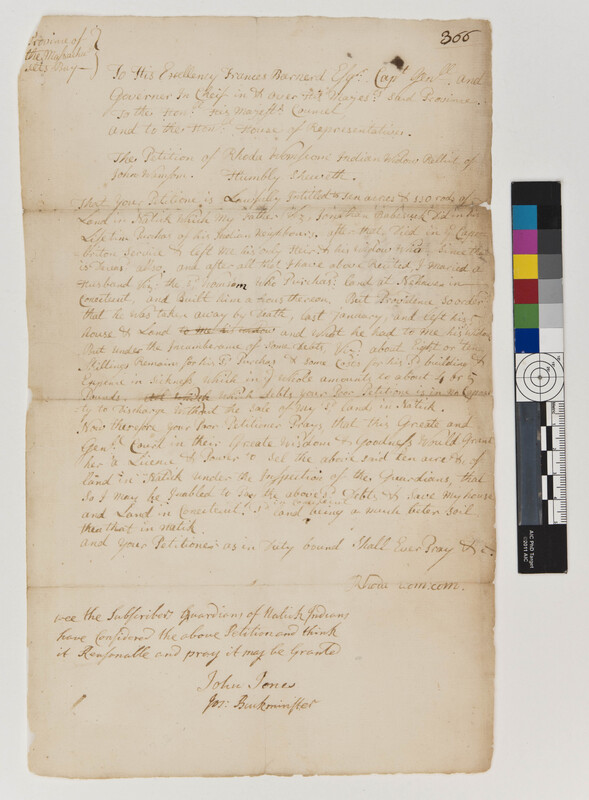 366
Province of
the Massachu
setts Bay
To His Excellency Frances Barnerd Esqr. Capt. Genll. and
Governer In Cheif in & over His Majest. said Province.
To the Honl. his Majesties Council
and to the Honl. House of Representatives.
The Petition of Rhoda Indian Widow Relict of
John Humbly Sheweth.
That Your Petitione is Lawfully Intitled to ten acres & 130 rods of
Land in Natick which my father Jonathan did in his
Life time Purchas of his Indian Neighbours. after that died in ye Cape
Breton Service & left me his only Heir & his widow who since that
is Deces'd also, and after all that I have above Recited, I Maried a
Husband who Purchasd. land at in
and Built him a House thereon. But Providence so orderd
that he was taken away by Death, last January, and left his
house & Land to me his widow and what he had to me his widow
But under the Incumbrance of Some debts, viz. about Eight or ten
Shillings Remain for his sd. Purchas & some for his sd. building &
in Sickness which in ye whole amounts to about 4 or 5
Pounds. which Debts your Poor Petitioner is in no Capasi
ty to Discharge without the Sale of my sd. land in Natick.
Now therefore your Poor Petitioner Prays, that this Greate and
Genll. Court in their Greate Wisdom & Goodness would Grant
her a Licence & Power to sel the above said ten acre & of
land in Natick under the Inspection of the Guardians, that
so I may be Enabled to pay the above sd. Debt, & save my house
and Land in sd. land being a much beter soil
then that in natick.
and your Petitioner as in Duty bound Shall Ever Pray &c.
wee the Subscribers Guardians of Natick Indians
have Considered the above Petition and think
it Reasonable and pray it may be Granted
John Jones
Jos: Buckminster